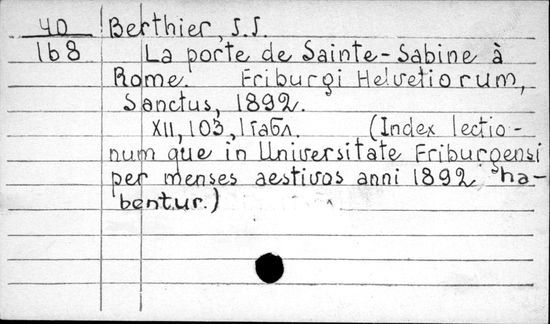 40 Berthier, J.J.
168 La porte de Sainte-Sabine à
Rome. Friburgi Helvetiorum,
Sanctus, 1892.
XII, 103, 1 табл. (Index lectio-
num que in Universitate Friburgensi
per menses aestivos anni 1892 ha-
bentur.)